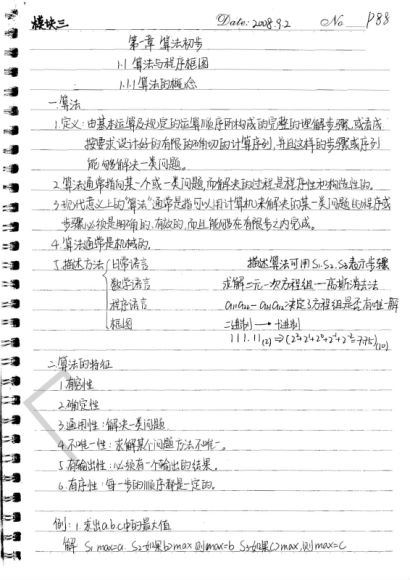 模块三 Date: 2008.9.2 No P88
第一章 算法初步
1.1 算法与程序框图
1.1.1 算法的概念
一.算法
1.定义:由基本运算及规定的运算顺序所构成的完整的理解步骤,或者成
按要求设计好的有限的确切的计算序列,并且这样的步骤或序列
能够解决一类问题。
2.算法通常指向某一个或一类问题,而解决的过程是程序性和构造性的。
3.现代意义上的"算法"通常是指可以用计算机来解决的某一类问题的程序或
步骤必须是明确的,有效的,而且能够在有限步之内完成。
4.算法通常是机械的。
5.描述方法 日常语言 描述算法可用S1.S2.S3表示步骤
数学语言 求解二元一次方程组—高斯消去法
程序语言 a11a22-a21a12决定了方程组是否有唯一解
框图 二进制→十进制
111.11(2)⇒(2²+2¹+2⁰+2⁻¹+2⁻²=7.75)(10)
二.算法的特征
1.有穷性
2.确定性
3.通用性:解决一类问题
4.不唯一性:求解某个问题方法不唯一。
5.有输出性:必须有一个输出的结果。
6.有序性:每一步的顺序都是一定的。
例:1.求出a.b.c中的最大值
解 S1 max=a S2如果b>max,则max=b S3如果c>max,则max=c